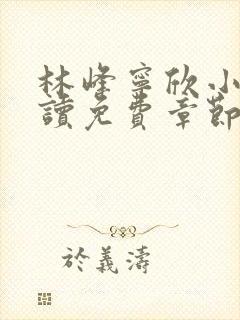 林峰寧欣小
讀免費章節
於義濤